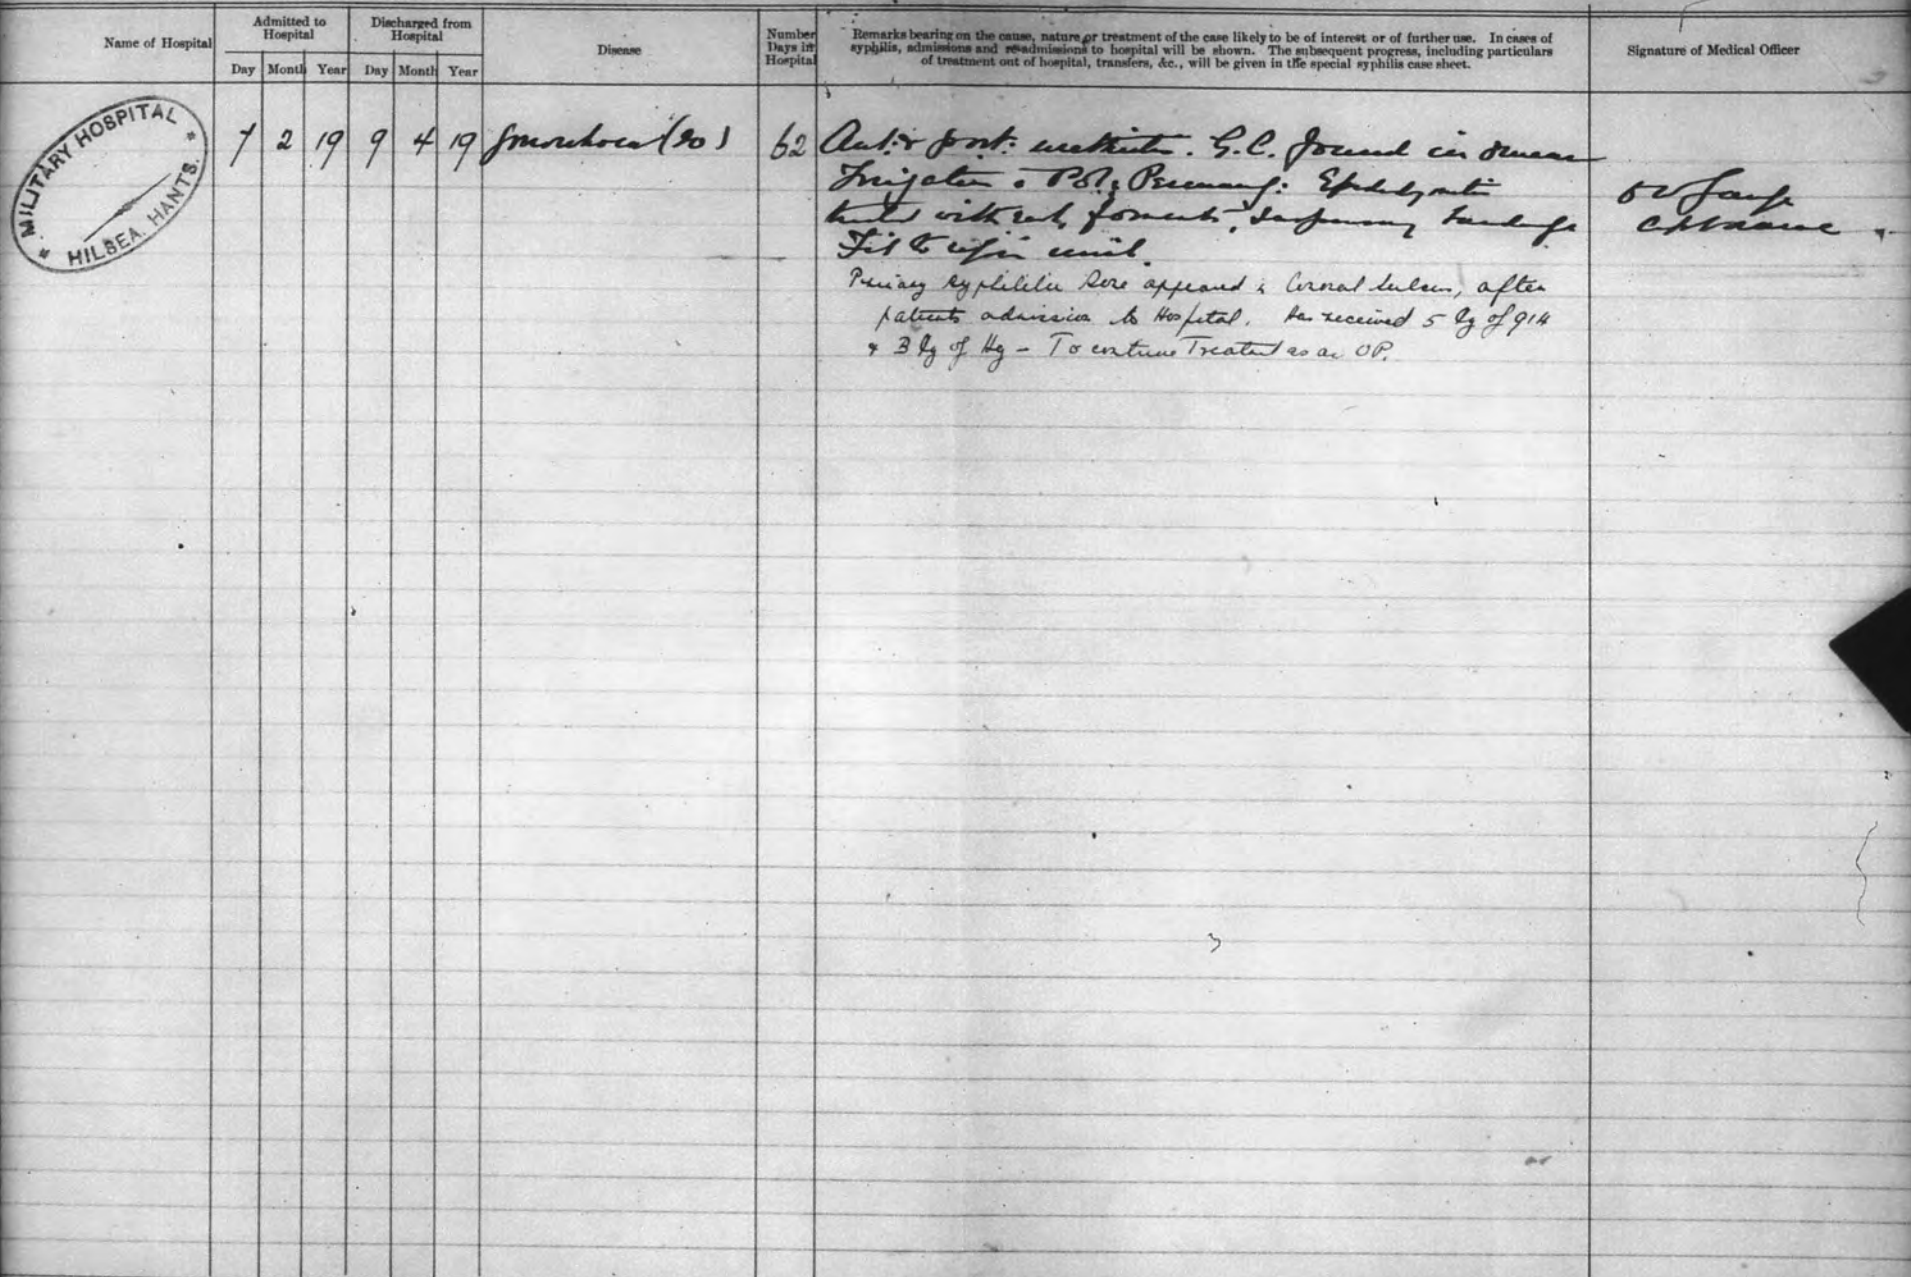 Name of Hospital
Admitted to
Hospital
Day Month Year
Discharged from
Hospital
Day Month Year
Disease
Number
Days in
Hospital
Remarks bearing on the cause, nature or treatment of the case likely to be of interest or of further use. In cases of
syphilis, admissions and re-admissions to hospital will be shown. The subsequent progress, including particulars
of treatment out of hospital, transfers, &c., will be given in the special syphilis case sheet.
Signature of Medical Officer
MILITARY HOSPITAL
HILSEA. HANTS.
7 2 19 9 4 19 Gonorrhoea (20) 62
Ant: & post: urethritis. G.C. found in smear
Irrigation Pot: Permang: Epididymitis
treated with rest, foments, suspensory bandage
Fit to rejoin unit.
Primary Syphilitic Sore appeared in Coronal Sulcus, after
patients admission to Hospital. Has received 5 Ig of 914
& 3 Ig of Hg - To continue Treatment as an OP.